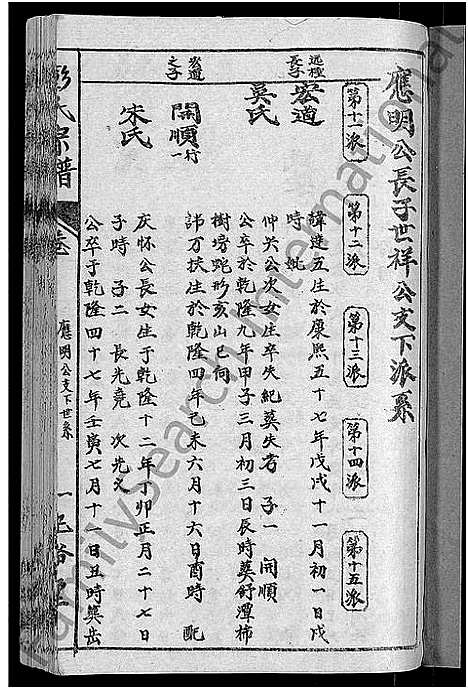 應明公長子世祥公支下派系
第十一派
第十二派
第十三派
第十四派
第十五派
遠檀長子
宏道
諱達五生於康熙五十七年戊戌十一月初一日戌
時 妣
吳氏
仲 公次女生卒失紀葬失考 子一 開順
公卒於乾隆九年甲子三月初三日辰時葬舒潭柿
樹塝 形亥山巳向
宏道之子
開順 行一
諱万扶生於乾隆四年己未六月十六日酉時 配
宋氏
庆怀公長女生于乾隆十二年丁卯正月二十七日
子時 子二 長光堯 次光义
公卒于乾隆四十七年壬寅七月十一日丑時葬岳
彭氏宗譜
卷
應明公支下世系
一
FamilySearch International